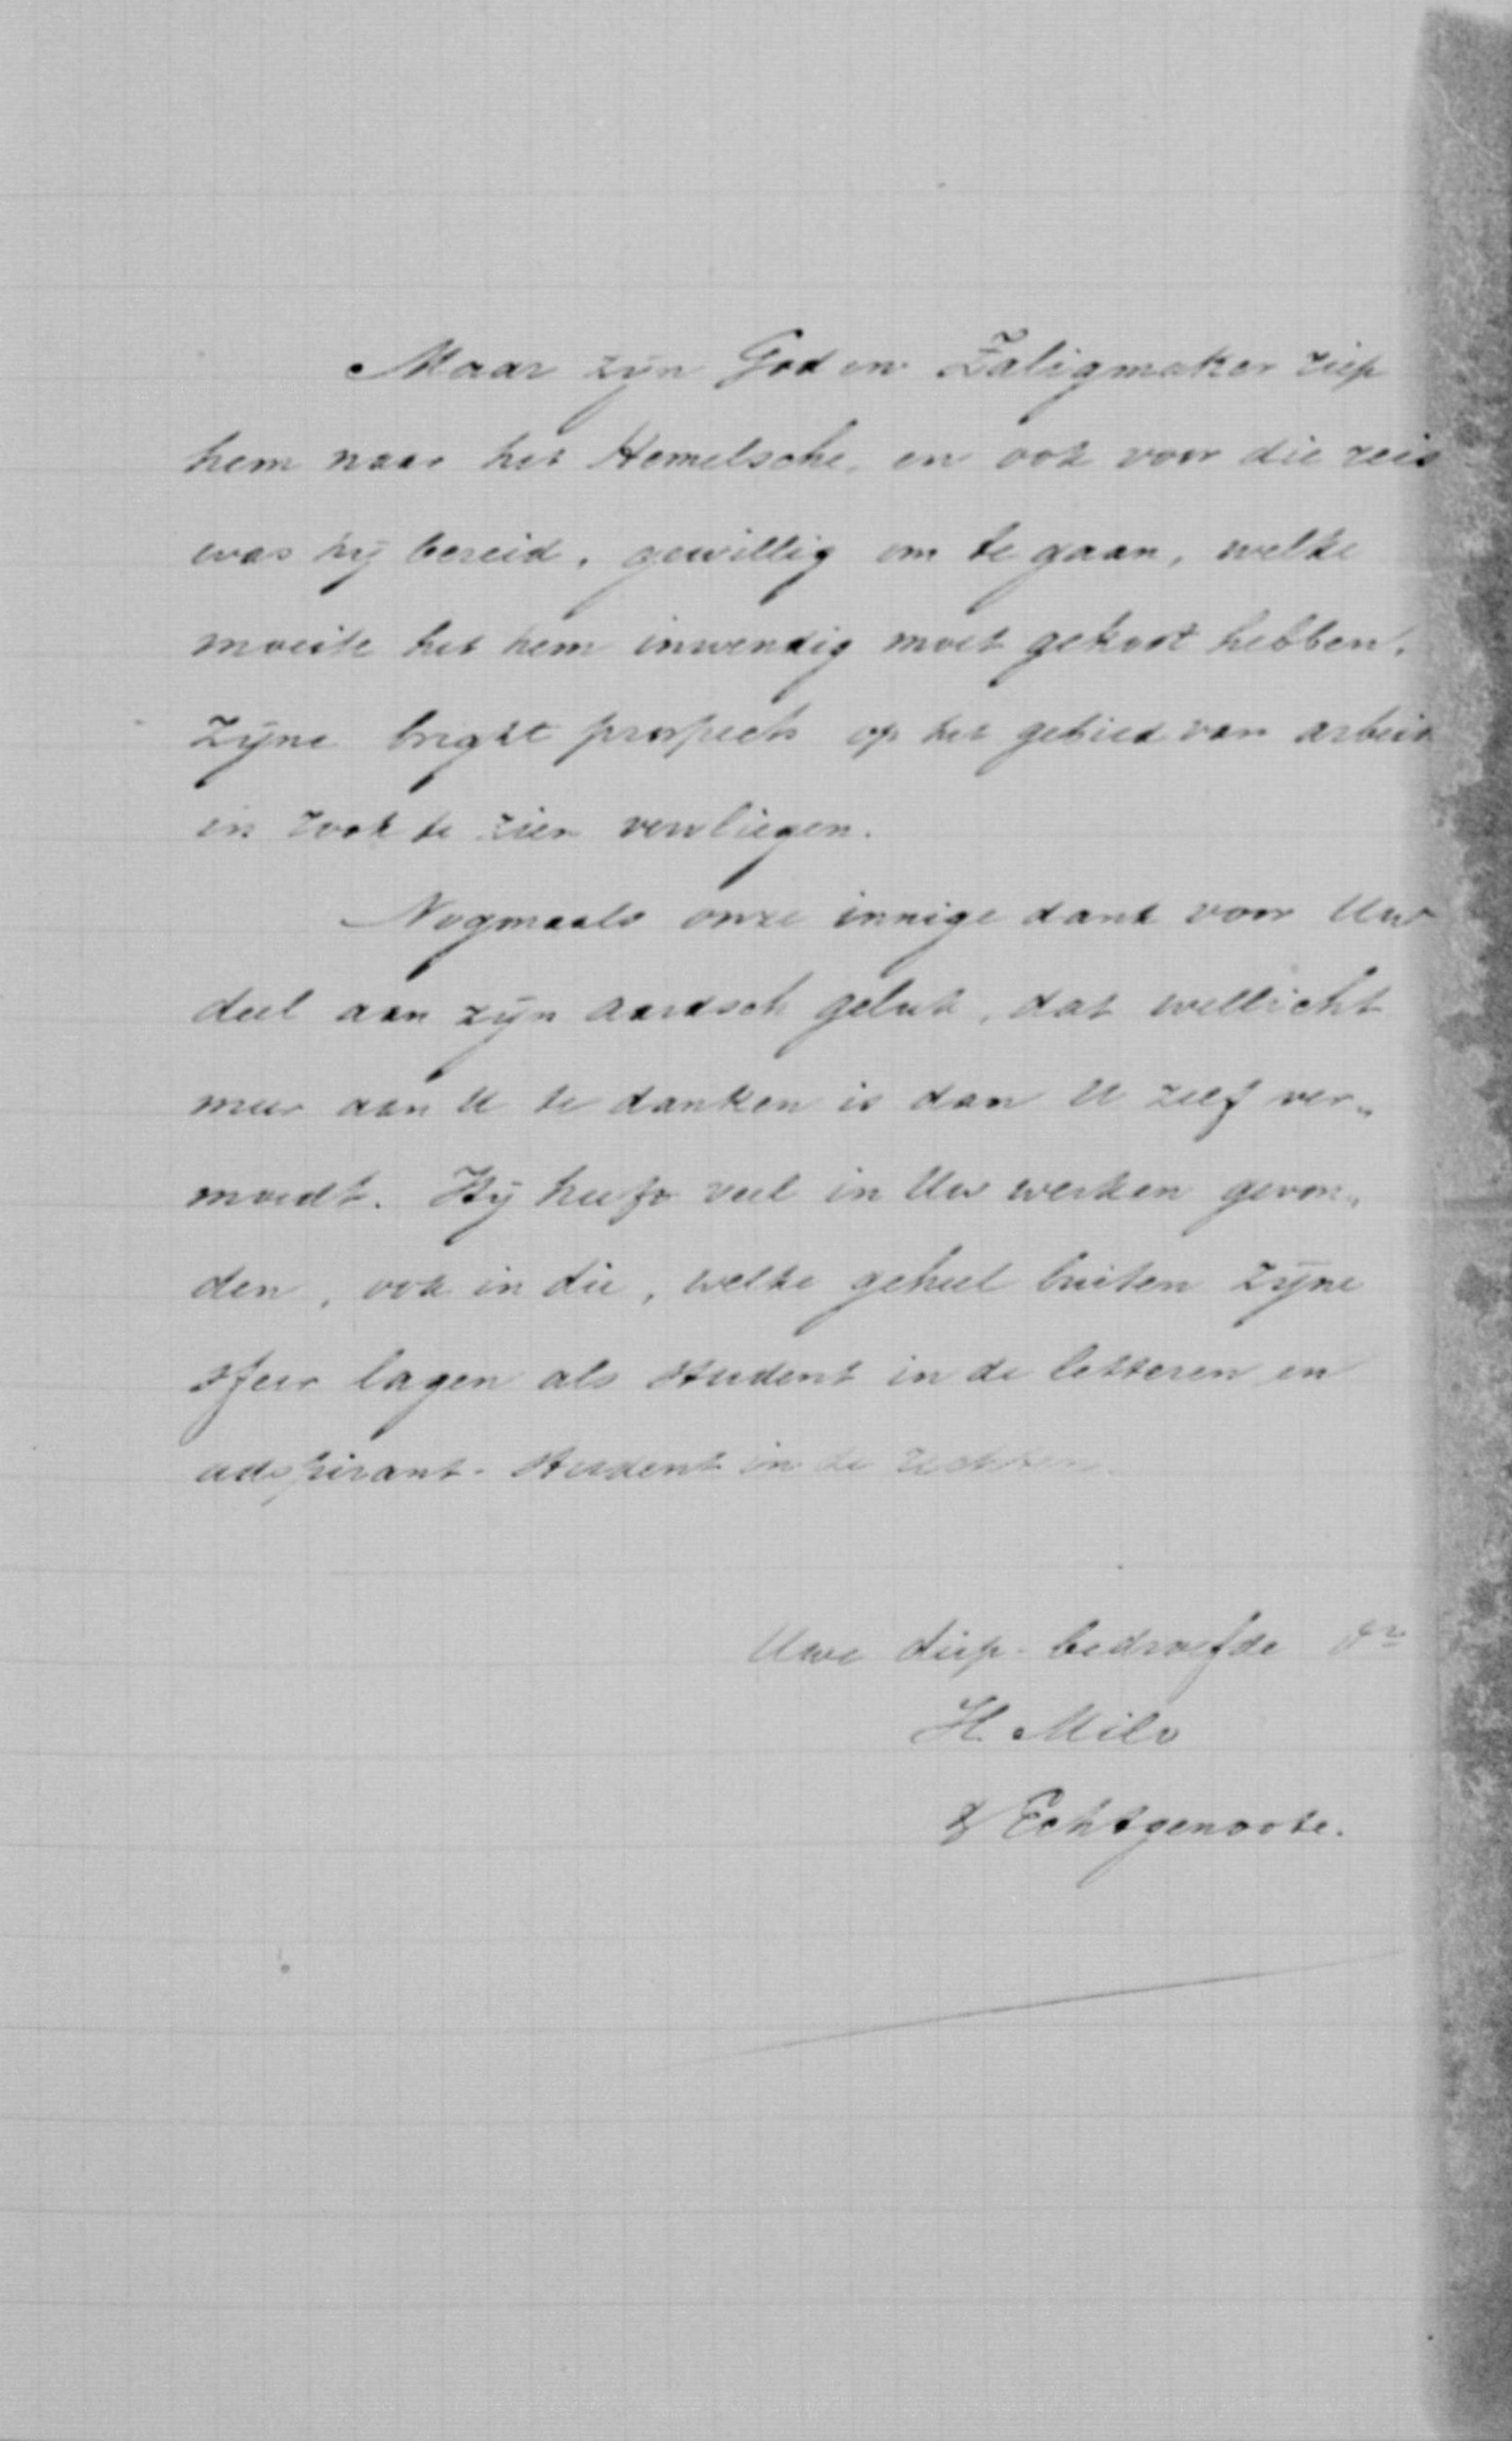 Maar zijn God en Zaligmaker riep
hem naar het Hemelsche, en ook voor die reis
was hij bereid, gewillig om te gaan, welke
moeite het hem inwendig moet gekost hebben,
zijne bright prospects op het gebied van arbeid
in rook te zien vervliegen.
Nogmaals onze innige dank voor Uw
deel aan zijn aardsch geluk, dat wellicht
meer aan U te danken is dan U zelf ver„
moedt. Hij heeft veel in Uw werken gevon„
den, ook in die, welke geheel buiten zijne
sfeer lagen als student in de letteren en
adspirant-student in de rechten.
Uwe diep-bedroefde
H. Milo
& Echtgenoote.